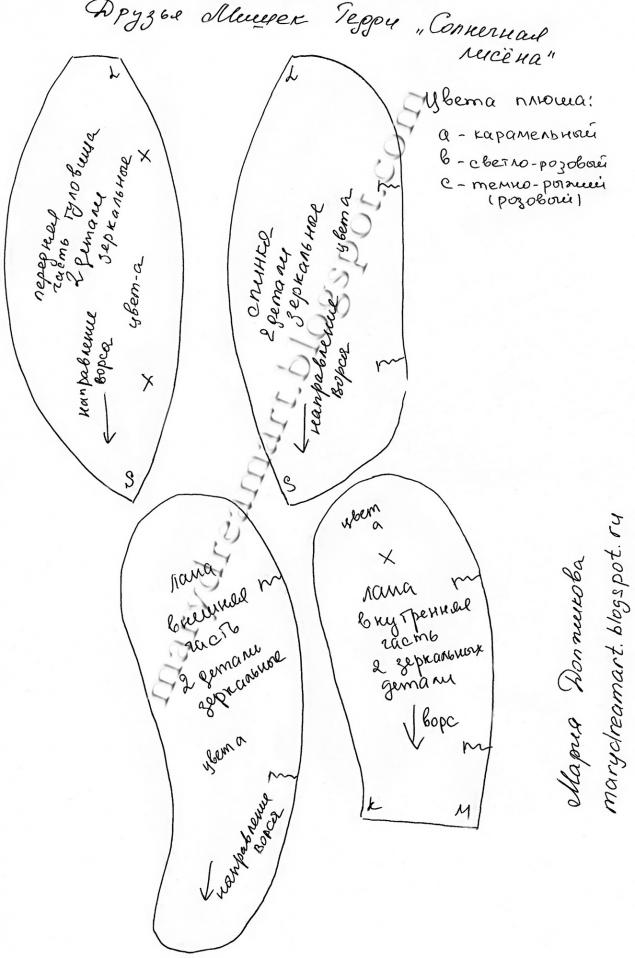 Друзья Мишек Тедди „Солнечная
лисёна“
Цвета плюша:
а - карамельный
в - светло-розовый
с - темно-рыжий
(розовый)
L
передняя
часть туловища
2 детали
зеркальные
х
цвет-а
х
направление
ворса
S
L
спинка
2 детали
зеркальные
цвет а
направление
ворса
S
лапа
внешняя
часть
2 детали
зеркальные
цвет а
направление
ворса
цвет
а
х
лапа
внутренняя
часть
2 зеркальных
детали
ворс
К
М
Мария
marydreamart.blogspot.ru
marydreamart.blogspot.com